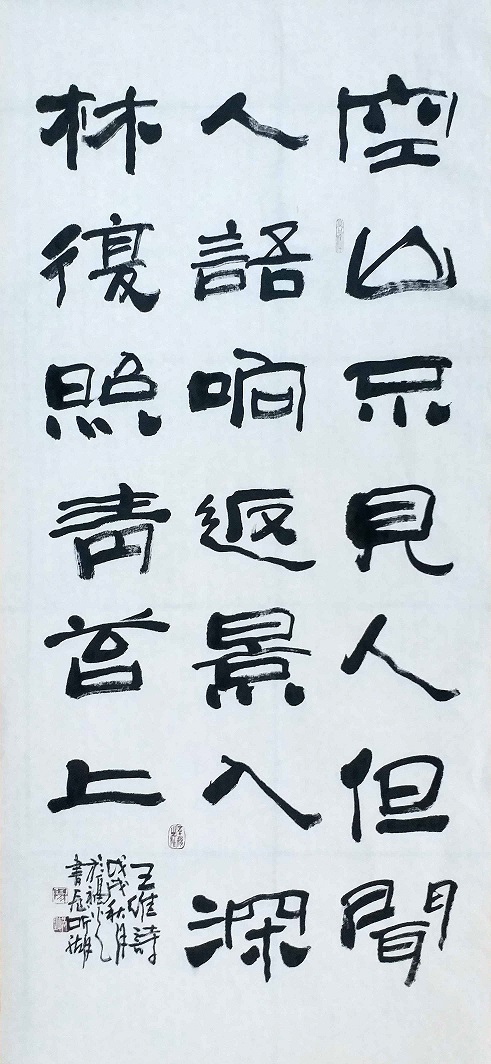 空山不見人但聞
人語响返景入深
林復照青苔上
王維詩
戊戌秋月